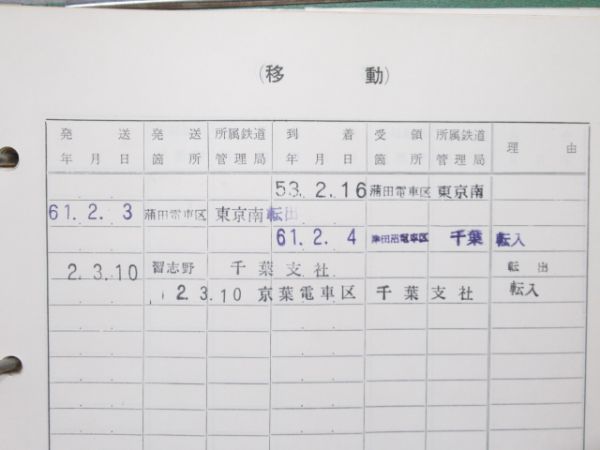 (移 動)
発送年月日 発送箇所 所属鉄道管理局 到着年月日 受領箇所 所属鉄道管理局 理由
53.2.16 蒲田電車区 東京南
61.2.3 蒲田電車区 東京南 転出
61.2.4 津田沼電車区 千葉 転入
2.3.10 習志野 千葉支社 転出
2.3.10 京葉電車区 千葉支社 転入